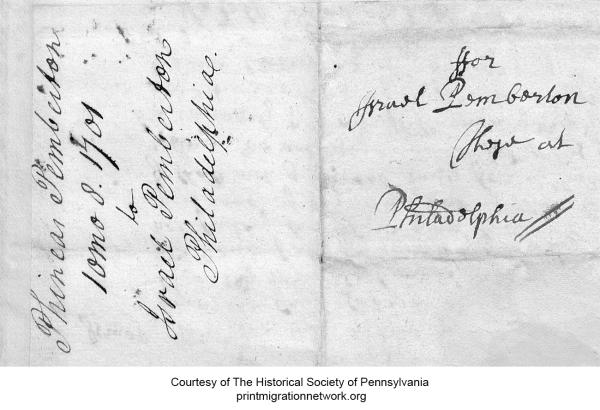 Phineas Pemberton
10mo 8. 1701
to
Israel Pemberton
Philadelphia.
ffor
Israel Pemberton
These at
Philadelphia
Courtesy of The Historical Society of Pennsylvania
printmigrationnetwork.org